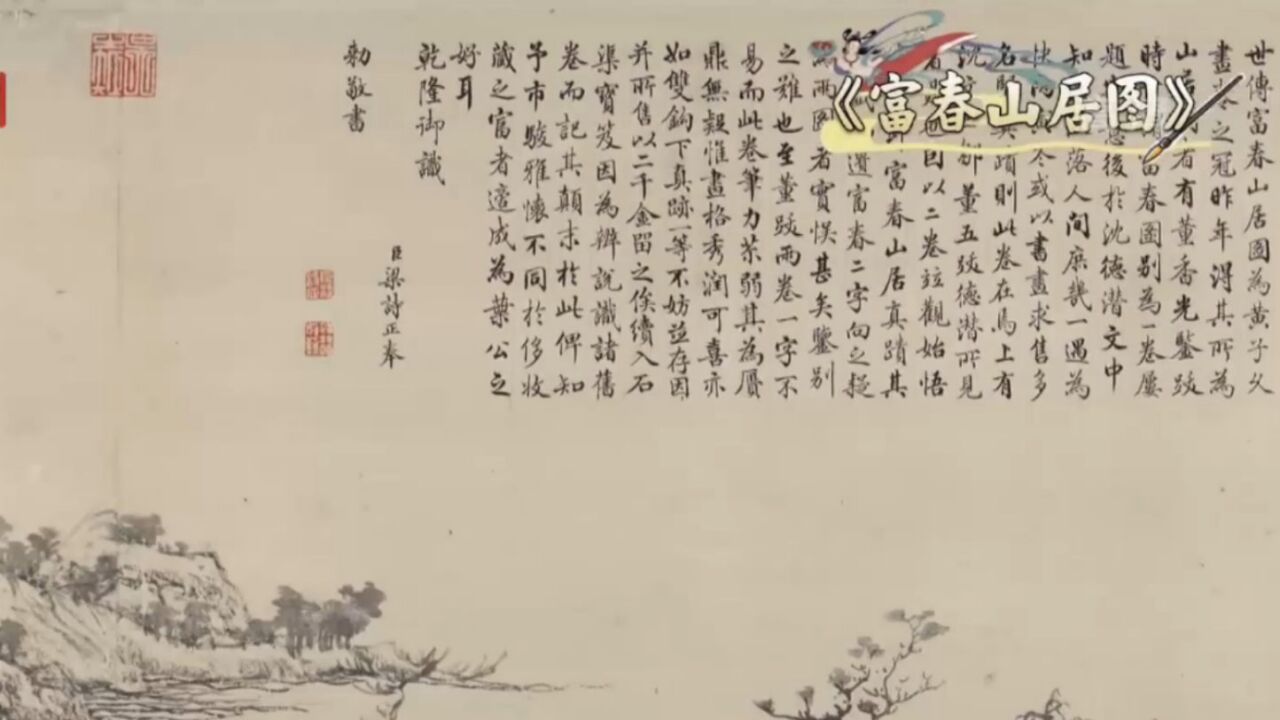 《富春山居图》
世傳富春山居圖為黃子久
畫卷之冠昨年得其所為
山居者有董香光鑒跋
時富春圖別為一卷屢
題意後於沈德潛文中
知落人間庶幾一遇為
快冬或以書畫求售多
名真蹟則此卷在焉上有
沈鄒董五跋德潛所見
者也因以二卷並觀始悟
富春山居真蹟其
遺富春二字向之疑
為兩圖者實悞甚矣鑒別
之難也至董跋兩卷一字不
易而此卷筆力苶弱其為贗
鼎無疑惟畫格秀潤可喜亦
如雙鈎下真跡一等不妨並存因
并所售以二千金留之俟續入石
渠寶笈因為辨說識諸舊
卷而記其顛末於此俾知
予市駿雅懷不同於侈收
藏之富者適成為葉公之
好耳
乾隆御識
臣梁詩正奉
勅敬書